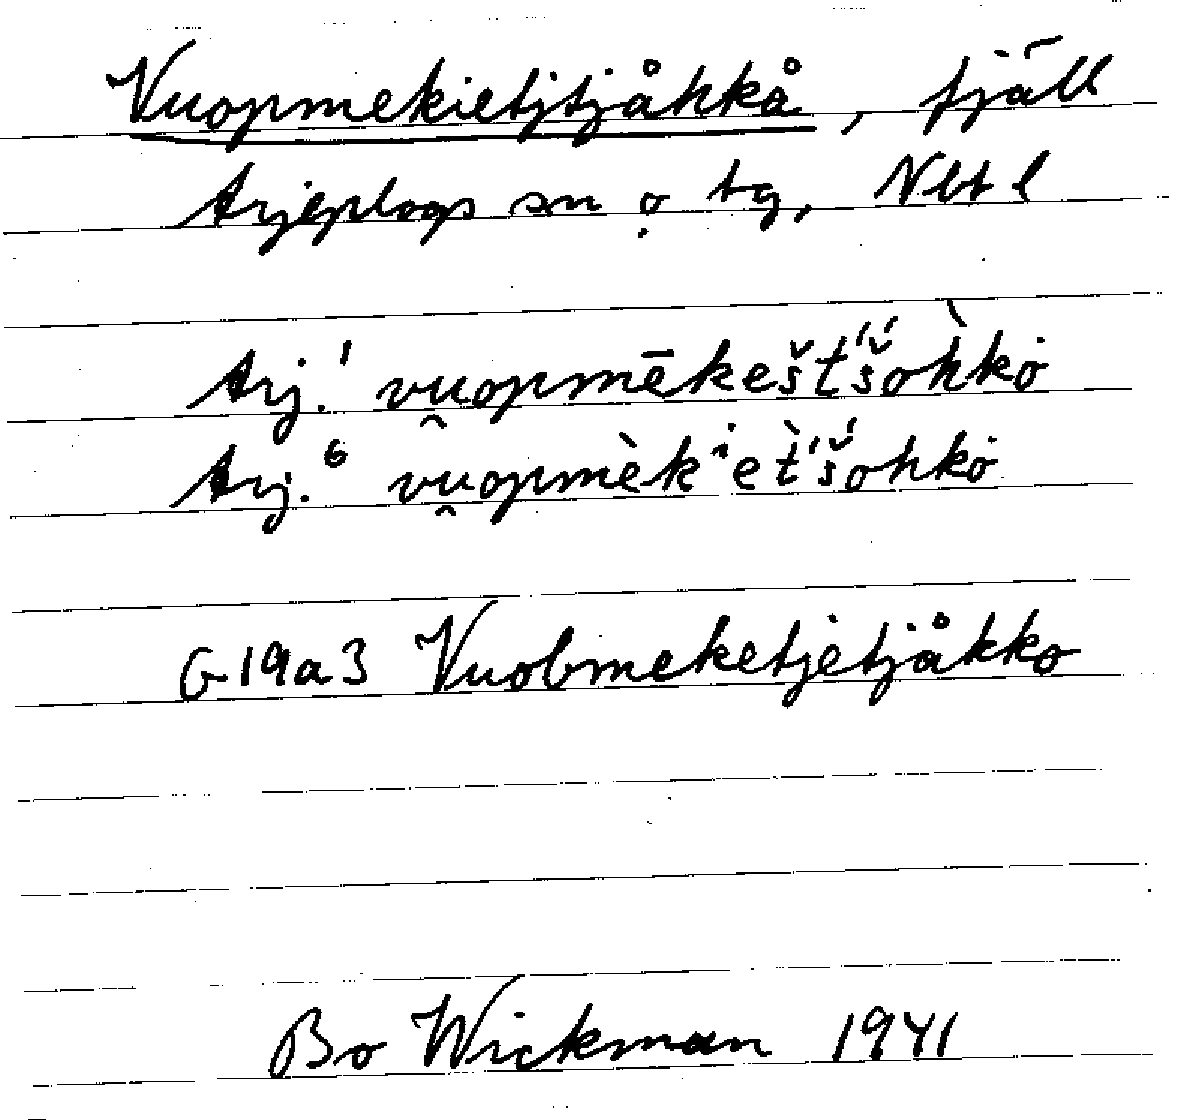 Vuopmekietjtjåhkå, fjäll
Arjeplogs sn o̩ tg, Nbt l
Arj.¹ vu̯opmēkešt́š́oh̀kȯ
Arj.⁶ vu̯opmèkⁱet̀́š́ohkȯ
G19a3 Vuobmeketjetjåkko
Bo Wickman 1941